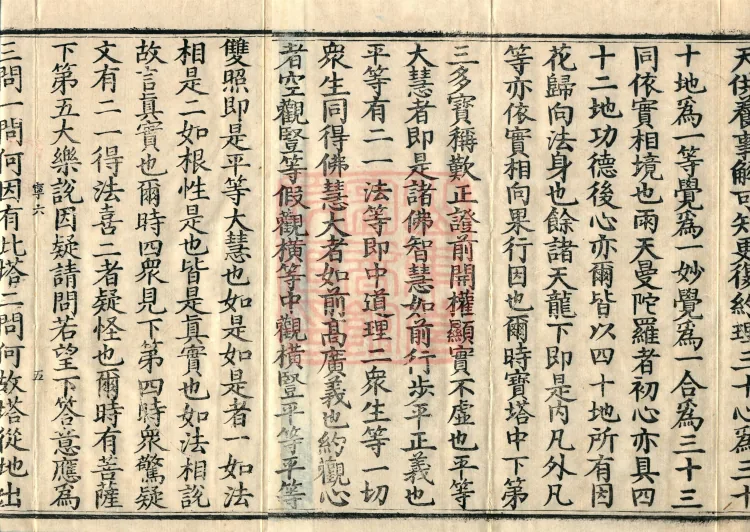 天供養重解可知更復約理三十心為三十
十地為一等覺為一妙覺為一合為三十三
同依實相境也雨天曼陀羅者初心亦具四
十二地功德後心亦爾皆以四十地所有因
花歸向法身也餘諸天龍下即是内凡外凡
等亦依實相向果行因也爾時寶塔中下第
三多寶稱歎正證前開權顯實不虛也平等
大慧者即是諸佛智慧如前行步平正義也
平等有二一法等即中道理二衆生等一切
衆生同得佛慧大者如前髙廣義也約觀心
者空觀豎等假觀横等中觀横豎平等平等
雙照即是平等大慧也如是如是者一如法
相是二如根性是也皆是眞實也如法相說
故言眞實也爾時四衆見下第四時衆驚疑
文有二一得法喜二者疑怪也爾時有菩薩
下第五大樂説因疑請問若望下答意應為
寧六
五
三問一問何因有此塔二問何故塔從地出